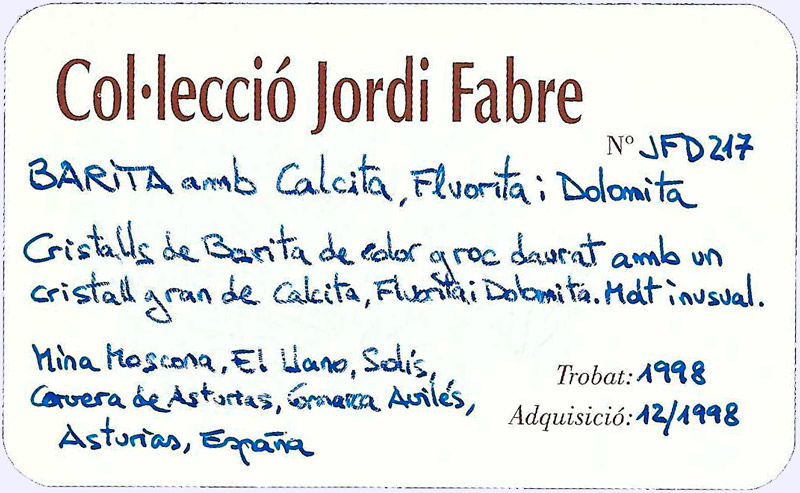 Col·lecció Jordi Fabre
Nº JFD217
BARITA amb Calcita, Fluorita i Dolomita
Cristalls de Barita de color groc daurat amb un
cristall gran de Calcita, Fluorita i Dolomita. Molt inusual.
Mina Moscona, El Llano, Solís,
Corvera de Asturias, Comarca Avilés,
Asturias, España
Trobat: 1998
Adquisició: 12/1998